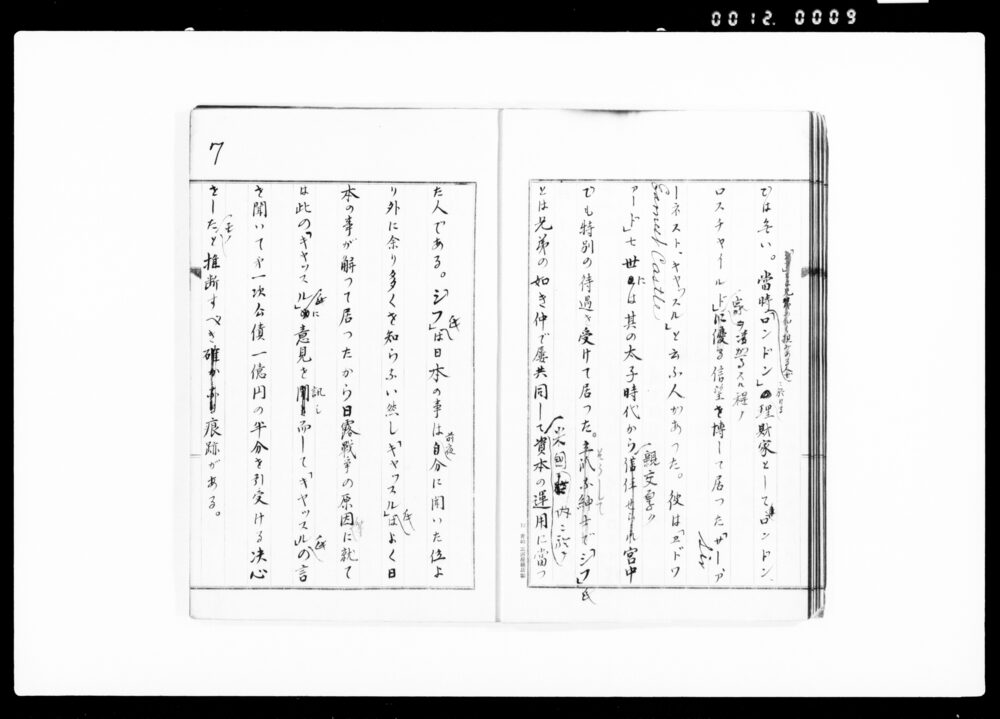 0012.0009
では無い。當時「ロンドン」の理財家としてロンドン、
ロスチャイルドに優る信望を博して居つた「サー、ア
ーネスト、キャッスル」と云ふ人があつた。彼は「エドワ
Ernest Castle
ァード」七世には其の太子時代から信任せられ宮中
親交厚ク
でも特別の待遇を受けて居つた。立派な紳士で「シフ」氏
そうして
とは兄弟の如き仲で屢共同して資本の運用に當つ
米國 内ニ於テ
7
た人である。「シフ」氏は日本の事は自分に聞いた位よ
前夜
り外に余り多くを知らない然し「キャッスル」氏はよく日
本の事が解つて居つたから日露戰爭の原因に就て
は此の「キャッスル」氏に意見を訊し而して「キャッスル」氏の言
を聞いて第一次公債一億円の半分を引受ける決心
をしたと推断すべき痕跡がある。